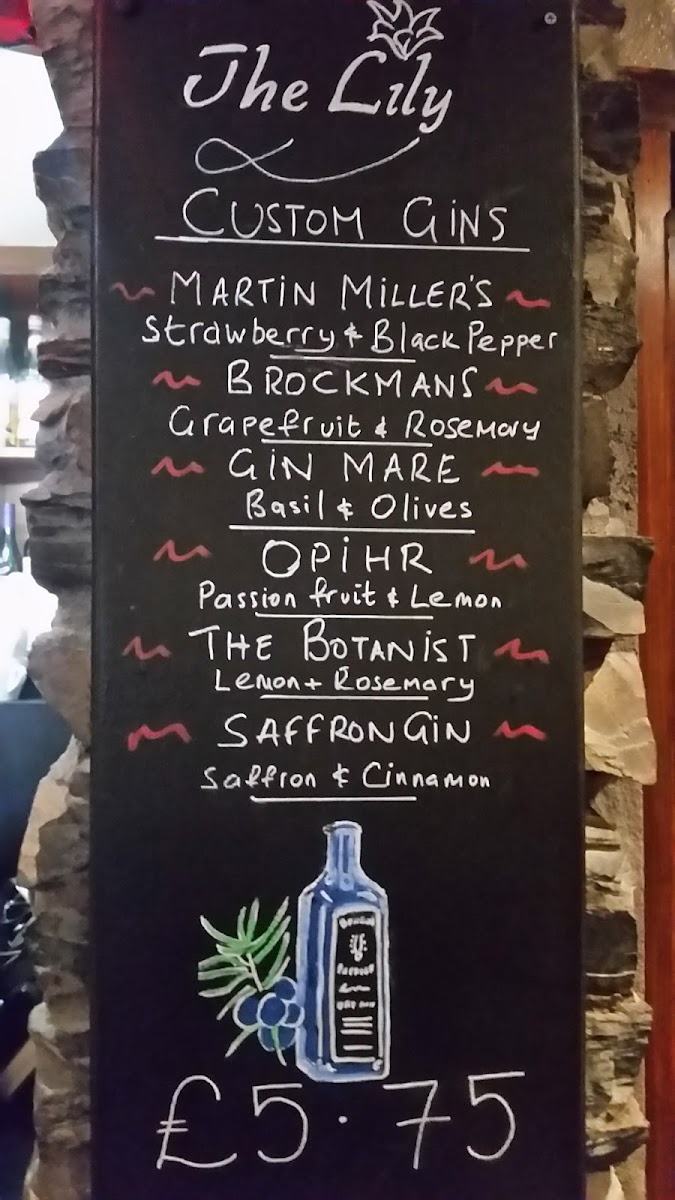 The Lily
CUSTOM GiNS
MARTiN MiLLER'S
Strawberry & Black Pepper
BROCKMANS
Grapefruit & Rosemary
GiN MARE
Basil & Olives
OPiHR
Passion fruit & Lemon
THE BOTANiST
Lemon + Rosemary
SAFFRON GiN
Saffron & Cinnamon
£5.75